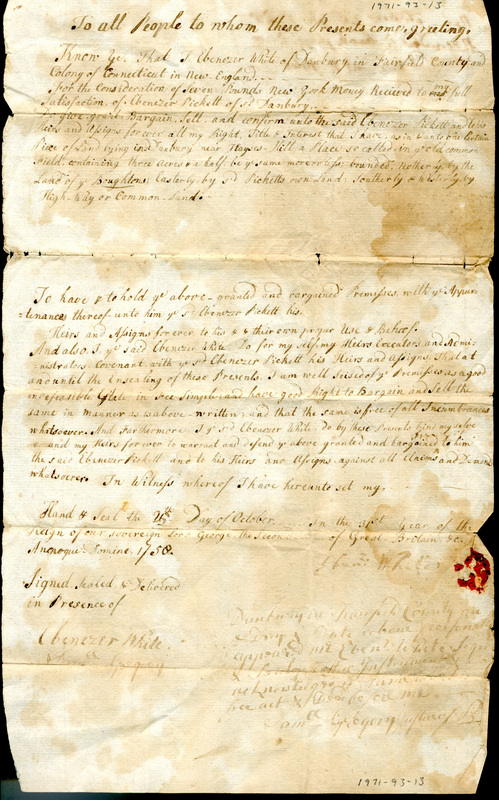 1971-93-13
To all People to whom these Presents come, greeting.
Know ye, That I Ebenezer White of Danbury in Fairfield County and
Colony of Connecticut in New England
For the Consideration of Seven Pounds New York Money Recieved to my full
Satisfaction, of Ebenezer Pickett of sd Danbury
Do give, grant, Bargain, Sell and confirm unto the said Ebenezer Pickett and his
Heirs and Assigns for ever all my Right, Title & Interest that I have in & unto one Certain
Piece of Land lying in sd Danbury near Hayes Hill a Place so called in ye old common
Field: containing three Acres & a half be ye same more or less: bounded: Notherly by the
Land of ye Boughtons Easterly by sd Picketts own Land: Southerly & Westerly by
High-Way or Common-Land.
To have & to hold ye above-granted and bargained Premisses, with ye Appur-
tenances thereof unto him ye sd Ebenezer Pickett his
Heirs and Assigns for ever to his & their own proper Use & Behoof.
And also I, ye said Ebenezer White Do for my self, my Heirs Executors and Admi-
nistrators, Covenant with ye sd Ebenezer Pickett his Heirs and Assigns, that at
and until the Ensealing of these Presents, I am well Seised of ye Premisses as a good
indefeasible Estate in Fee Simple and have good Right to Bargain and Sell the
same in Manner as is above-written; and that the same is free of all Incumbrances
whatsoever. And Furthermore I ye sd Ebenezer White Do by these Presents bind my selve
and my Heirs for ever to warrant and defend ye above granted and bargained to him
the said Ebenezer Pickett and to his Heirs and Assigns against all Claims and Demands
whatsoever. In Witness whereof I have hereunto set my
Hand & Seal the 26th Day of October In the Year of the
Reign of our sovereign Lord George the Second of Great-Britain &c.
Annoque Domine, 1758.
Signed Sealed & Delivered
in Presence of
Ebenezer White
Gregory
Danbury in Fairfield County
personally
appeared Mr Ebenr White
Instrument
acknowledged
free act & before me
Samll Gregory Justice
1971-93-13